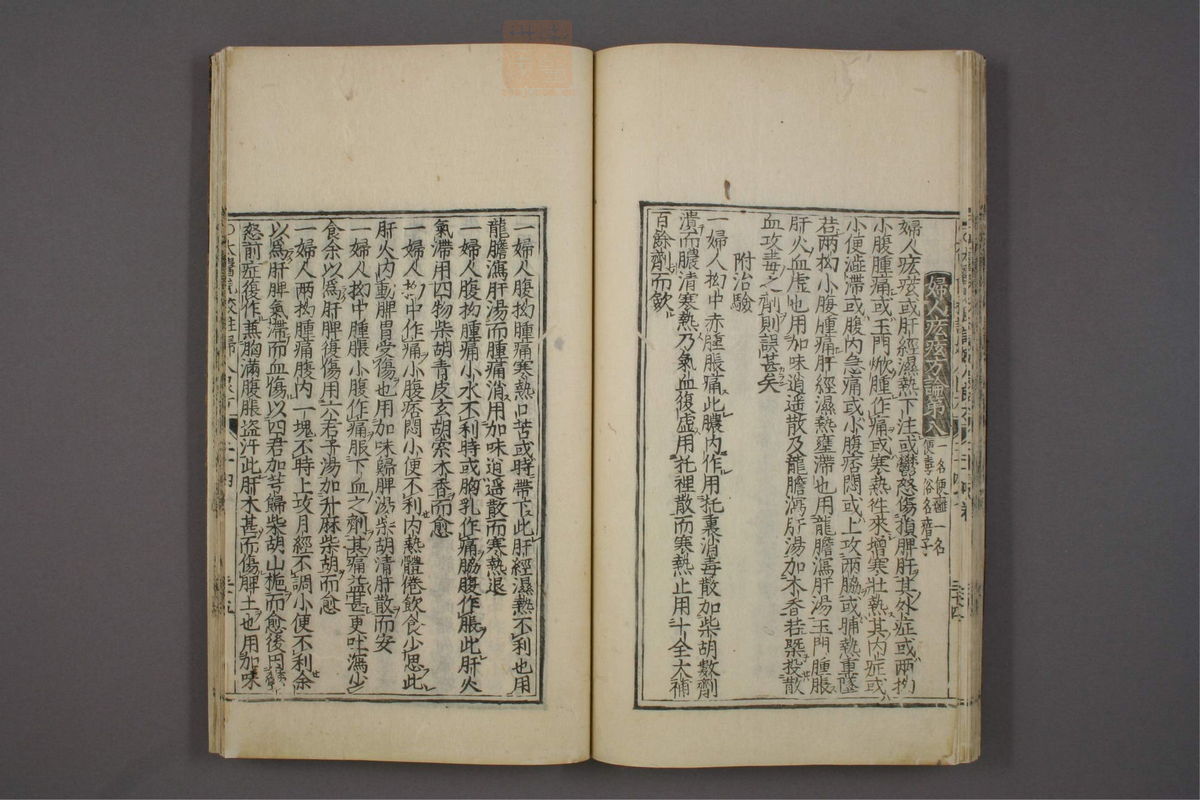 婦人疝疾方論第八
一名便癰一名
便毒俗名痦子
婦人疝疾或肝經濕熱下注或鬱怒傷損脾肝其外症或兩拗
小腹腫痛或玉門焮腫作痛或寒熱徃來增寒壯熱其內症或
小便澁滯或腹內急痛或小腹痞悶或上攻兩脇或晡熱重墜
若兩拗小腹腫痛肝經濕熱壅滯也用龍膽瀉肝湯玉門腫脹
肝火血虛也用加味逍遥散及龍膽瀉肝湯加木香若槩投散
血攻毒之劑則誤甚矣
附治驗
一婦人拗中赤腫脹痛此膿內作用托裏消毒散加柴胡數劑
潰而膿清寒熱乃氣血復虛用托裡散而寒熱止用十全大補
百餘劑而歛
一婦人腹拗腫痛寒熱口苦或時帶下此肝經濕熱不利也用
龍膽瀉肝湯而腫痛消用加味逍遥散而寒熱退
一婦人腹拗腫痛小水不利時或胸乳作痛脇腹作脹此肝火
氣滯用四物柴胡青皮玄胡索木香而愈
一婦人拗中作痛小腹痞悶小便不利內熱體倦飲食少思此
肝火內動脾胃受傷也用加味歸脾湯柴胡清肝散而安
一婦人拗中腫脹小腹作痛服下血之劑其痛益甚更吐瀉少
食余以爲肝脾復傷用六君子湯加升麻柴胡而愈
一婦人兩拗腫痛腹內一塊不時上攻月經不調小便不利余
以爲肝脾氣滯而血傷以四君加芎歸柴胡山梔而愈後因
怒前症復作兼胸滿腹脹盗汗此肝木甚而傷脾土也用加味